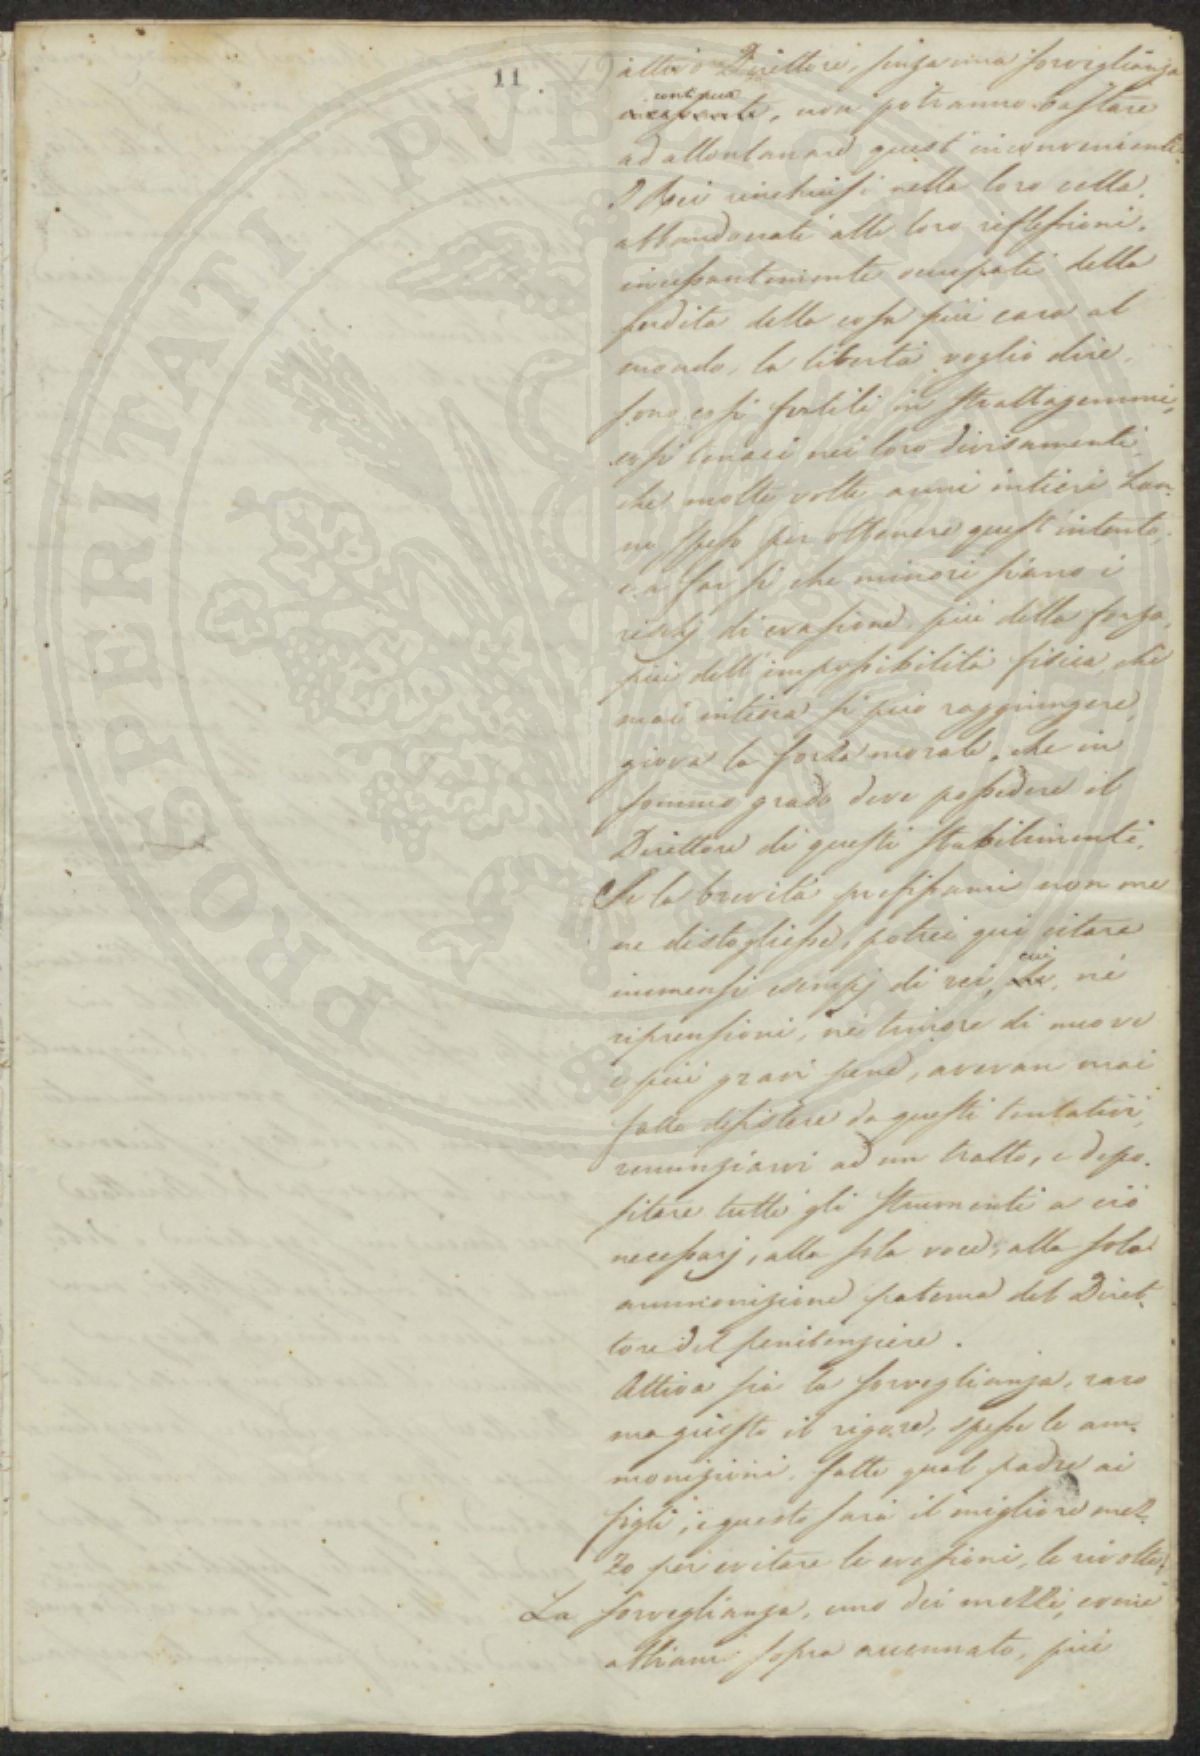 11.
attivo Direttore, senza una sorveglianza
continua
incessante, non potranno bastare
ad allontanare quest'inconvenienti.
I Rei rinchiusi nella loro cella,
abbandonati alle loro riflessioni,
incessantemente occupati della
perdita della cosa più cara al
mondo, la libertà voglio dire,
sono così fertili in strattagemmi,
così tenaci nei loro divisamenti,
che molte volte anni intieri han-
no speso per ottenere quest'intento,
e a far sì che minori siano i
rischj di evasione, più della forza,
più dell'impossibilità fisica, che
mai intiera si può raggiungere,
giova la forza morale, che in
sommo grado deve possedere il
Direttore di questi stabilimenti.
Se la brevità prefissami non me
ne distogliesse, potrei qui citare
immensi esempj di rei, cui, nè
riprensioni, nè timore di nuove
e più gravi pene, avevan mai
fatto desistere da questi tentativi,
renunziarvi ad un tratto, e depo-
sitare tutti gli strumenti a ciò
necessarj, alla sola voce, alla sola
ammonizione paterna del Diret-
tore del penitenziere.
Attiva sia la sorveglianza, raro
ma giusto il rigore, spesse le am-
monizioni, fatte qual padre ai
figli, e questo sarà il migliore mez-
zo per evitare le evasioni, le rivolte.
La sorveglianza, uno dei mezzi, come
abbiam sopra accennato, più
PROSPERITATI PUBLICAE